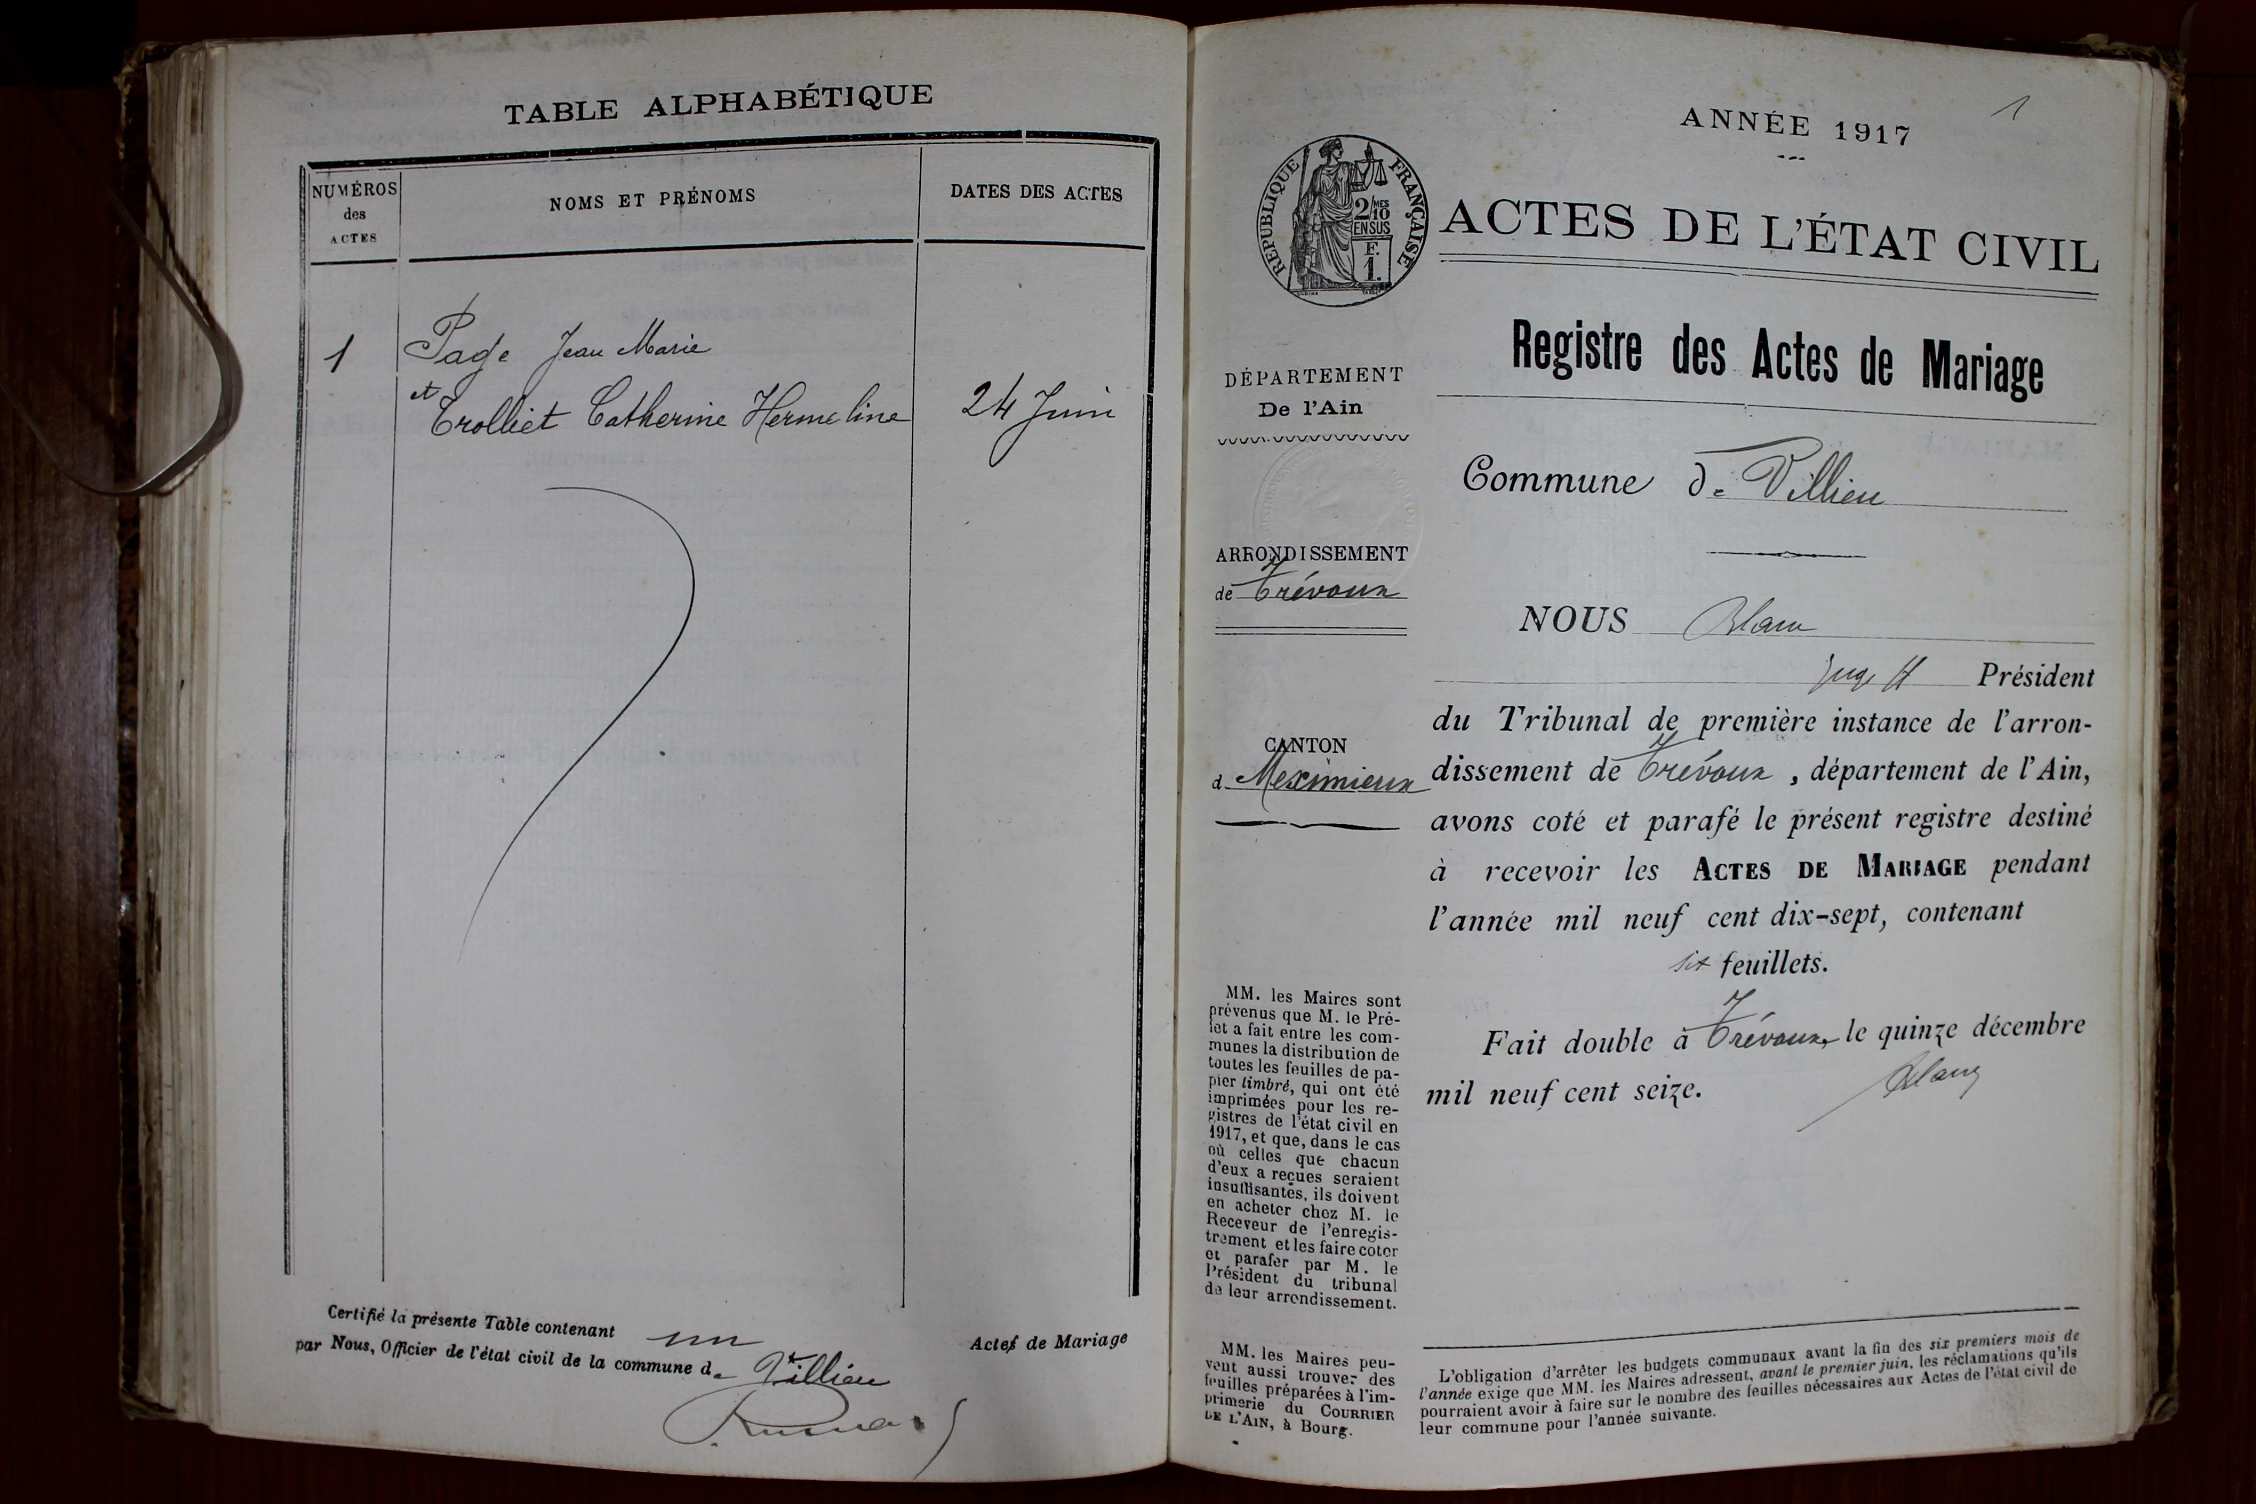 TABLE ALPHABÉTIQUE
NUMÉROS
des
ACTES
NOMS ET PRÉNOMS
DATES DES ACTES
1
Page Jean Marie
et
Trolliet Catherine Hermeline
24 Juin
Certifié la présente Table contenant un Actes de Mariage
par Nous, Officier de l'état civil de la commune de Villieu
1
ANNÉE 1917
RÉPUBLIQUE FRANÇAISE
2/10
MES
EN SUS
F.
1.
ACTES DE L'ÉTAT CIVIL
Registre des Actes de Mariage
DÉPARTEMENT
De l'Ain
Commune de Villieu
ARRONDISSEMENT
de Trévoux
CANTON
d Meximieux
NOUS Blanc
Juge Président
du Tribunal de première instance de l'arron-
dissement de Trévoux, département de l'Ain,
avons coté et parafé le présent registre destiné
à recevoir les ACTES DE MARIAGE pendant
l'année mil neuf cent dix-sept, contenant
six feuillets.
Fait double à Trévoux, le quinze décembre
mil neuf cent seize.
Blanc
MM. les Maires sont
prévenus que M. le Pré-
fet a fait entre les com-
munes la distribution de
toutes les feuilles de pa-
pier timbré, qui ont été
imprimées pour les re-
gistres de l'état civil en
1917, et que, dans le cas
où celles que chacun
d'eux a reçues seraient
insuffisantes, ils doivent
en acheter chez M. le
Receveur de l'enregis-
trement et les faire coter
et parafer par M. le
Président du tribunal
de leur arrondissement.
MM. les Maires peu-
vent aussi trouver des
feuilles préparées à l'im-
primerie du COURRIER
DE L'AIN, à Bourg.
L'obligation d'arrêter les budgets communaux avant la fin des six premiers mois de
l'année exige que MM. les Maires adressent, avant le premier juin, les réclamations qu'ils
pourraient avoir à faire sur le nombre des feuilles nécessaires aux Actes de l'état civil de
leur commune pour l'année suivante.